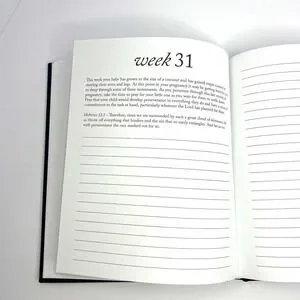 week 31
The week your baby has grown to the size of a coconut and has gained
moving their arms and legs. At this point in your pregnancy it may be getting harder
to sleep through some of these movements. As you persevere through this
pregnancy, take the time to pray for your little one as you wait for them to
Pray that your child would develop perseverance in everything they do and have a
commitment to the task at hand, particularly whatever the Lord has planned for them.
Hebrews 12:1 - Therefore, since we are surrounded by such a great cloud of witnesses, let
us throw off everything that hinders and the sin that so easily entangles. And let us run
with perseverance the race marked out for us.